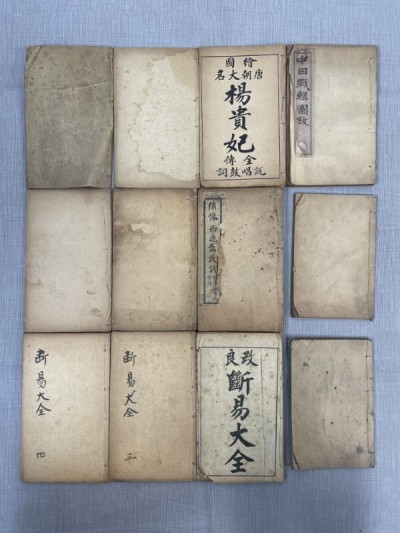 繪圖
唐朝大名
楊貴妃
全傳
說唱鼓詞
中日戰輯圖敘
繡像西遊
断易大全 四
断易大全 三
改良
斷易大全